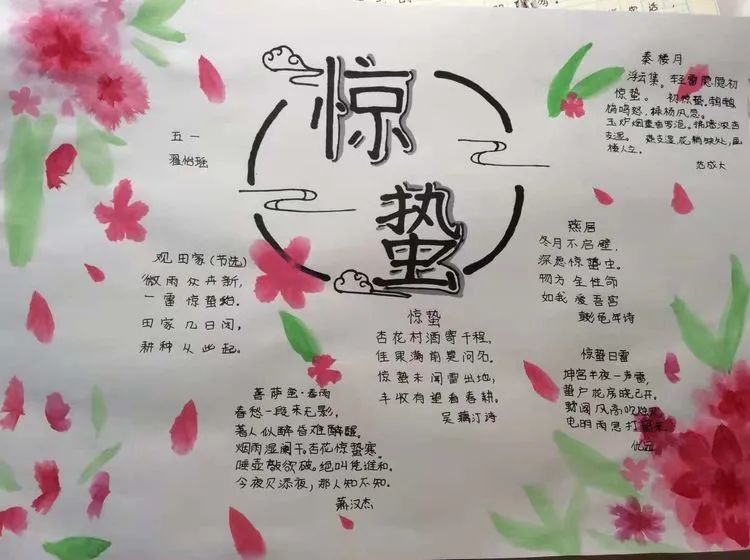 惊
蛰
五一
秦楼月
浮云集。轻雷隐隐初
惊蛰。初惊蛰,鹁鸪
鸣怒,绿杨风急。
玉炉烟重香罗浥。拂墙浓杏
燕支湿。燕支湿,花梢缺处,画
楼人立。
范成大
观田家(节选)
微雨众卉新,
一雷惊蛰始。
田家几日闲,
耕种从此起。
燕居
冬月不启壁,
深愚惊蛰虫。
物方全性命
如我爱吾宫
惊蛰
杏花村酒寄千程,
佳果满前莫问名。
惊蛰未闻雷出地,
丰收有望看春耕。
吴藕汀诗
惊蛰日雷
坤宫半夜一声雷,
蛰户花房晓已开。
野阔风高吹烛灭,
电明雨急打窗来。
仇远
菩萨蛮·春雨
春愁一段来无影,
著人似醉昏难醒。
烟雨湿阑干。杏花惊蛰寒。
唾壶敲欲破。绝叫凭谁和。
今夜欠添衣,那人知不知。
萧汉杰